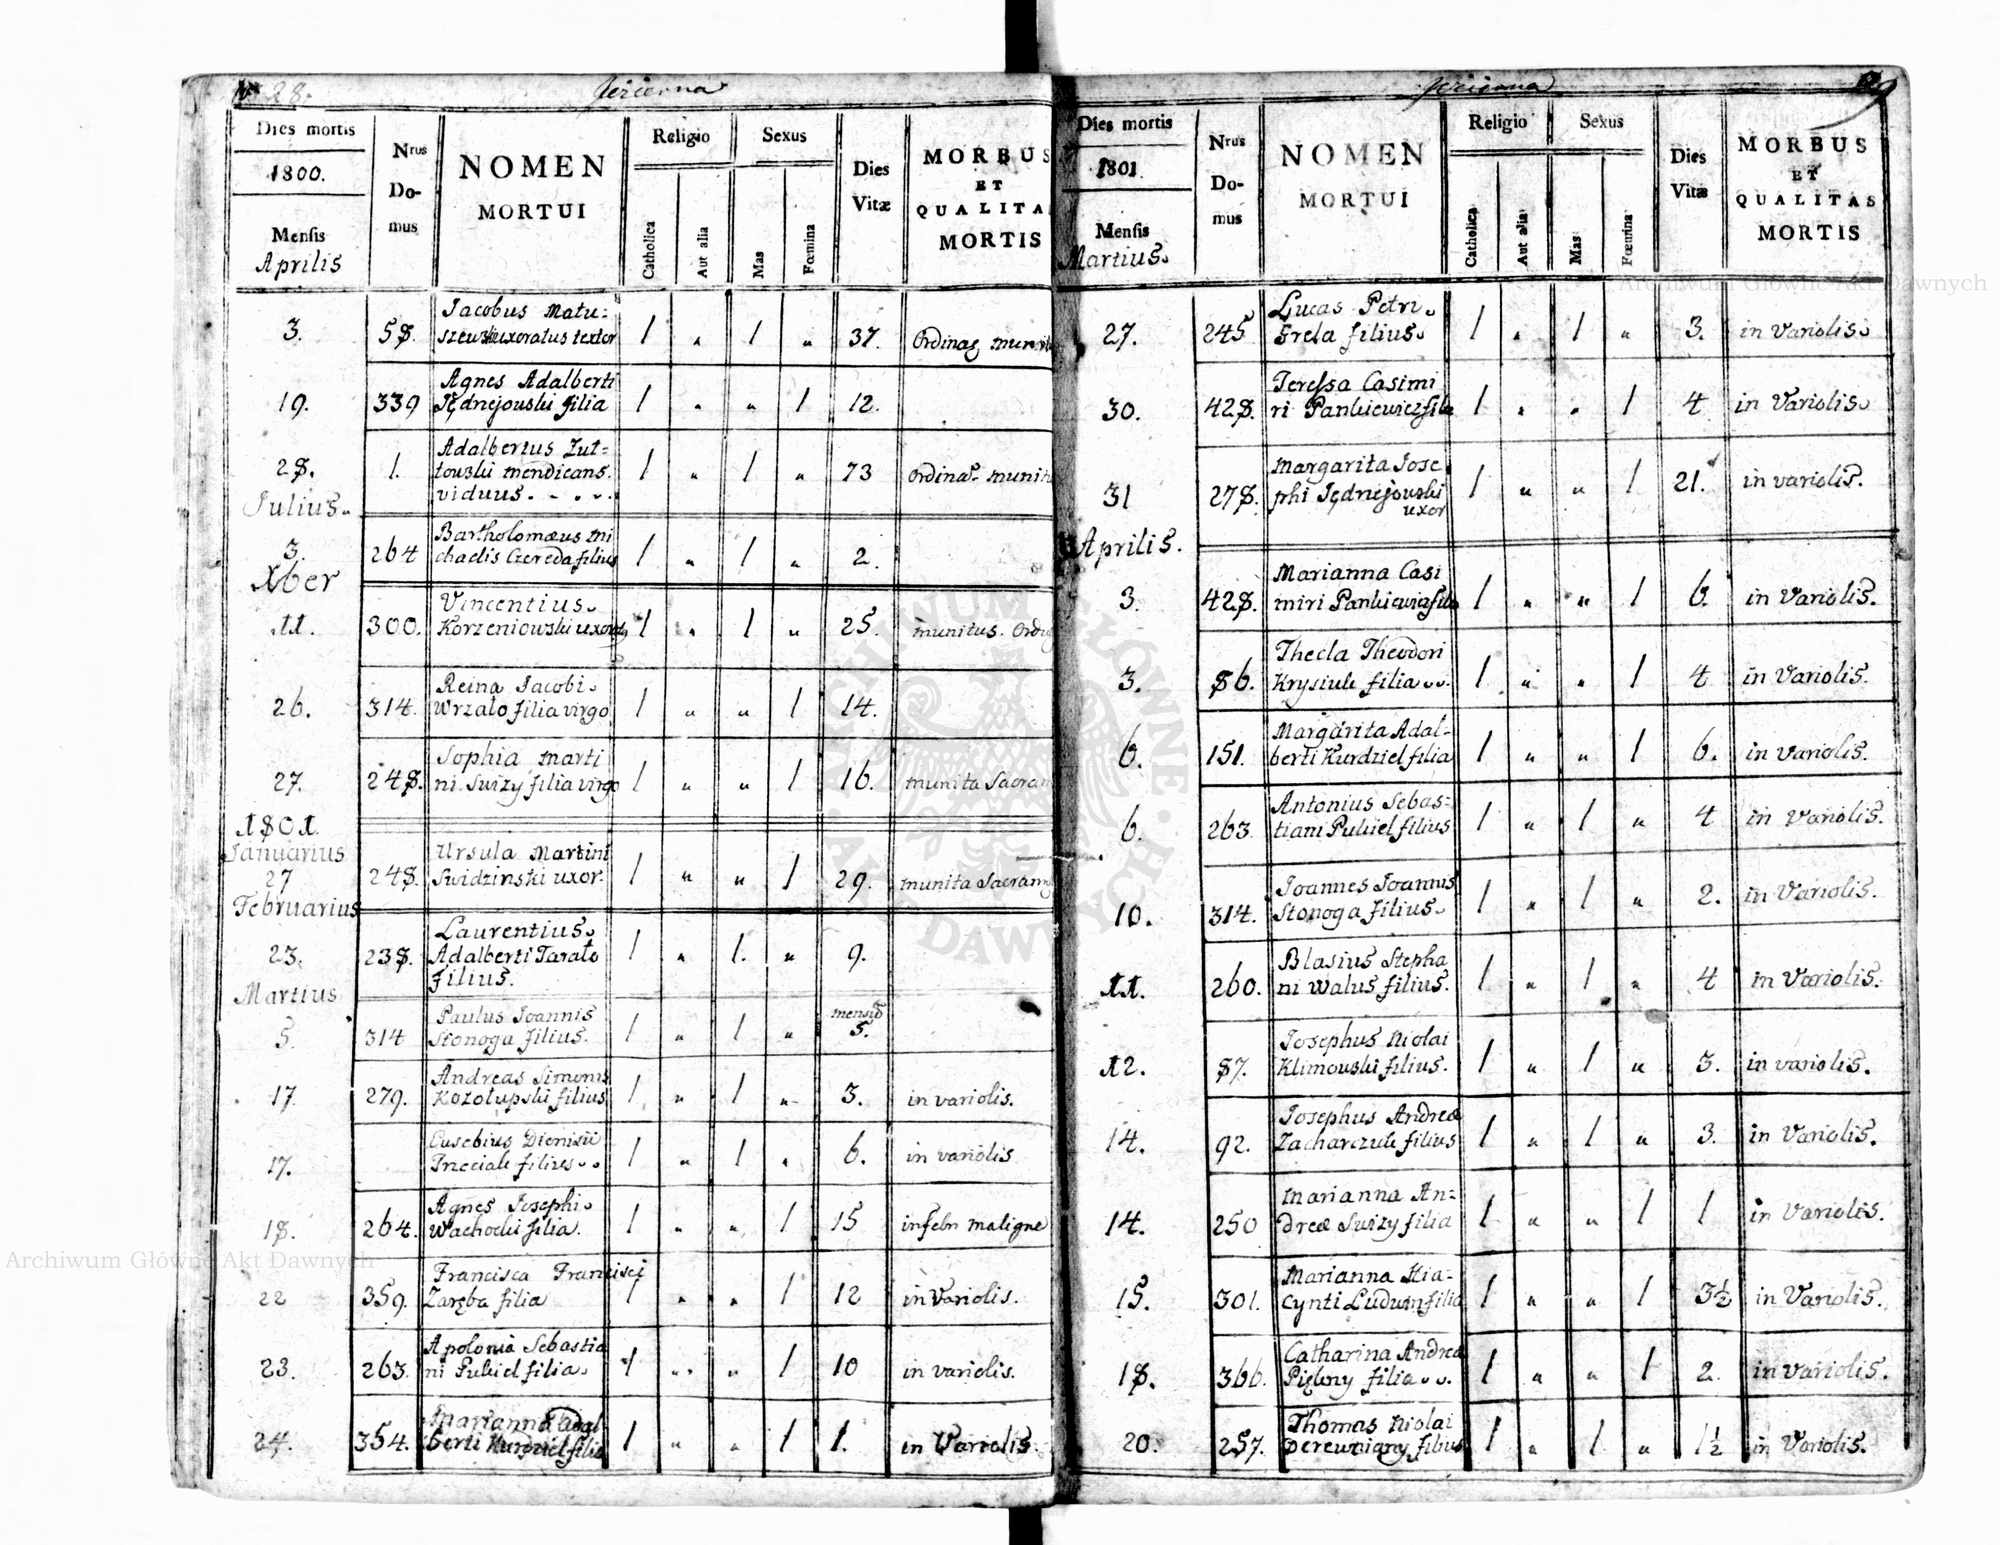 28.
Jezierna
Dies mortis
1800.
Mensis
Aprilis
Nrus
Do-
mus
NOMEN
MORTUI
Religio
Catholica
Aut alia
Sexus
Mas
Fœmina
Dies
Vitæ
MORBUS
ET
QUALITA
MORTIS
3. 58. Jacobus Matu:
szewski uxoratus textor 1 " 1 " 37. Ordinaꝫ munit
19. 339 Agnes Adalberti
Jędrejowski filia 1 " " 1 12.
28. 1. Adalbertus Lut=
towski mendicans
viduus. 1 " 1 " 73 ordinaꝫ munit
Julius.
3. 264 Bartholomæus Mi
chaelis Czereda filius 1 " 1 " 2.
Xber
11. 300. Vincentius
Korzeniowski 1 " 1 " 25. munitus. Ord
26. 314. Reina Jacobi
Wrzało filia virgo 1 " " 1 14.
27. 248. Sophia Marti
ni Swizy filia virgo 1 " " 1 16. munita Sacram
1801
Januarius
27 248. Ursula Martini
Swidzinski uxor. 1 " " 1 29. munita Sacram
Februarius
23. 238. Laurentius
Adalberti Tarało
filius. 1 " 1. " 9.
Martius
5. 314 Paulus Joannis
Stonoga filius. 1 " 1 " mensiū
5.
17 279. Andreas Simonis
Kozołupski filius 1 " 1 " 3. in variolis.
17. Eusebius Dionisii
Przeciak filius 1 " 1 " 6. in variolis
18. 264. Agnes Josephi
Wachocki filia. 1 " " 1 15 in febr maligne
22 359. Francisca Francisci
Zaręba filia 1 " " 1 12 in Variolis.
23. 263. Apolonia Sebastia
ni Pukiel filia 1 " " 1 10 in variolis.
24. 354. Marianna Adal
berti Kurdziel filia 1 " " 1 1. in Variolis.
Jezierna
29
Dies mortis
1801.
Mensis
Martius.
Nrus
Do-
mus
NOMEN
MORTUI
Religio
Catholica
Aut alia
Sexus
Mas
Fœmina
Dies
Vitæ
MORBUS
ET
QUALITAS
MORTIS
27. 245 Lucas Petri
Grela filius 1 " 1 " 3. in Variolis
30. 428. Teressa Casimi
ri Pankiewicz filia 1 " " 1 4 in Variolis
31 278. Margarita Jose
phi Jędrejowski
uxor 1 " " 1 21. in variolis.
Aprilis.
3. 428. Marianna Casi
miri Pankiewicz filia 1 " " 1 6. in Variolis.
3. 86. Thecla Theodori
Krysiuk filia 1 " " 1 4 in Variolis.
6. 151. Margarita Adal-
berti Kurdziel filia 1 " " 1 6. in Variolis.
6. 263. Antonius Sebas-
tiani Pukiel filius 1 " 1 " 4 in Variolis.
10. 314. Joannes Joannis
Stonoga filius 1 " 1 " 2. in Variolis.
11. 260. Blasius Stepha
ni Walus filius. 1 " 1 " 4 in Variolis.
12. 87. Josephus Nicolai
Klimowski filius. 1 " 1 " 3. in variolis.
14. 92. Josephus Andreæ
Zacharczuk filius 1 " 1 " 3. in Variolis.
14. 250 Marianna An=
dreæ Swizy filia 1 " " 1 1 in Variolis.
15. 301. Marianna Hia-
cynti Ludwin filia 1 " " 1 3½ in Variolis.
18. 366. Catharina Andreæ
Piękny filia 1 " " 1 2. in Variolis.
20. 257. Thomas Nicolai
Derewniany filius 1 " 1 " 1½ in Variolis.
Archiwum Główne Akt Dawnych
Archiwum Główne Akt Dawnych
ARCHIWUM GŁÓWNE · AKT DAWNYCH ·